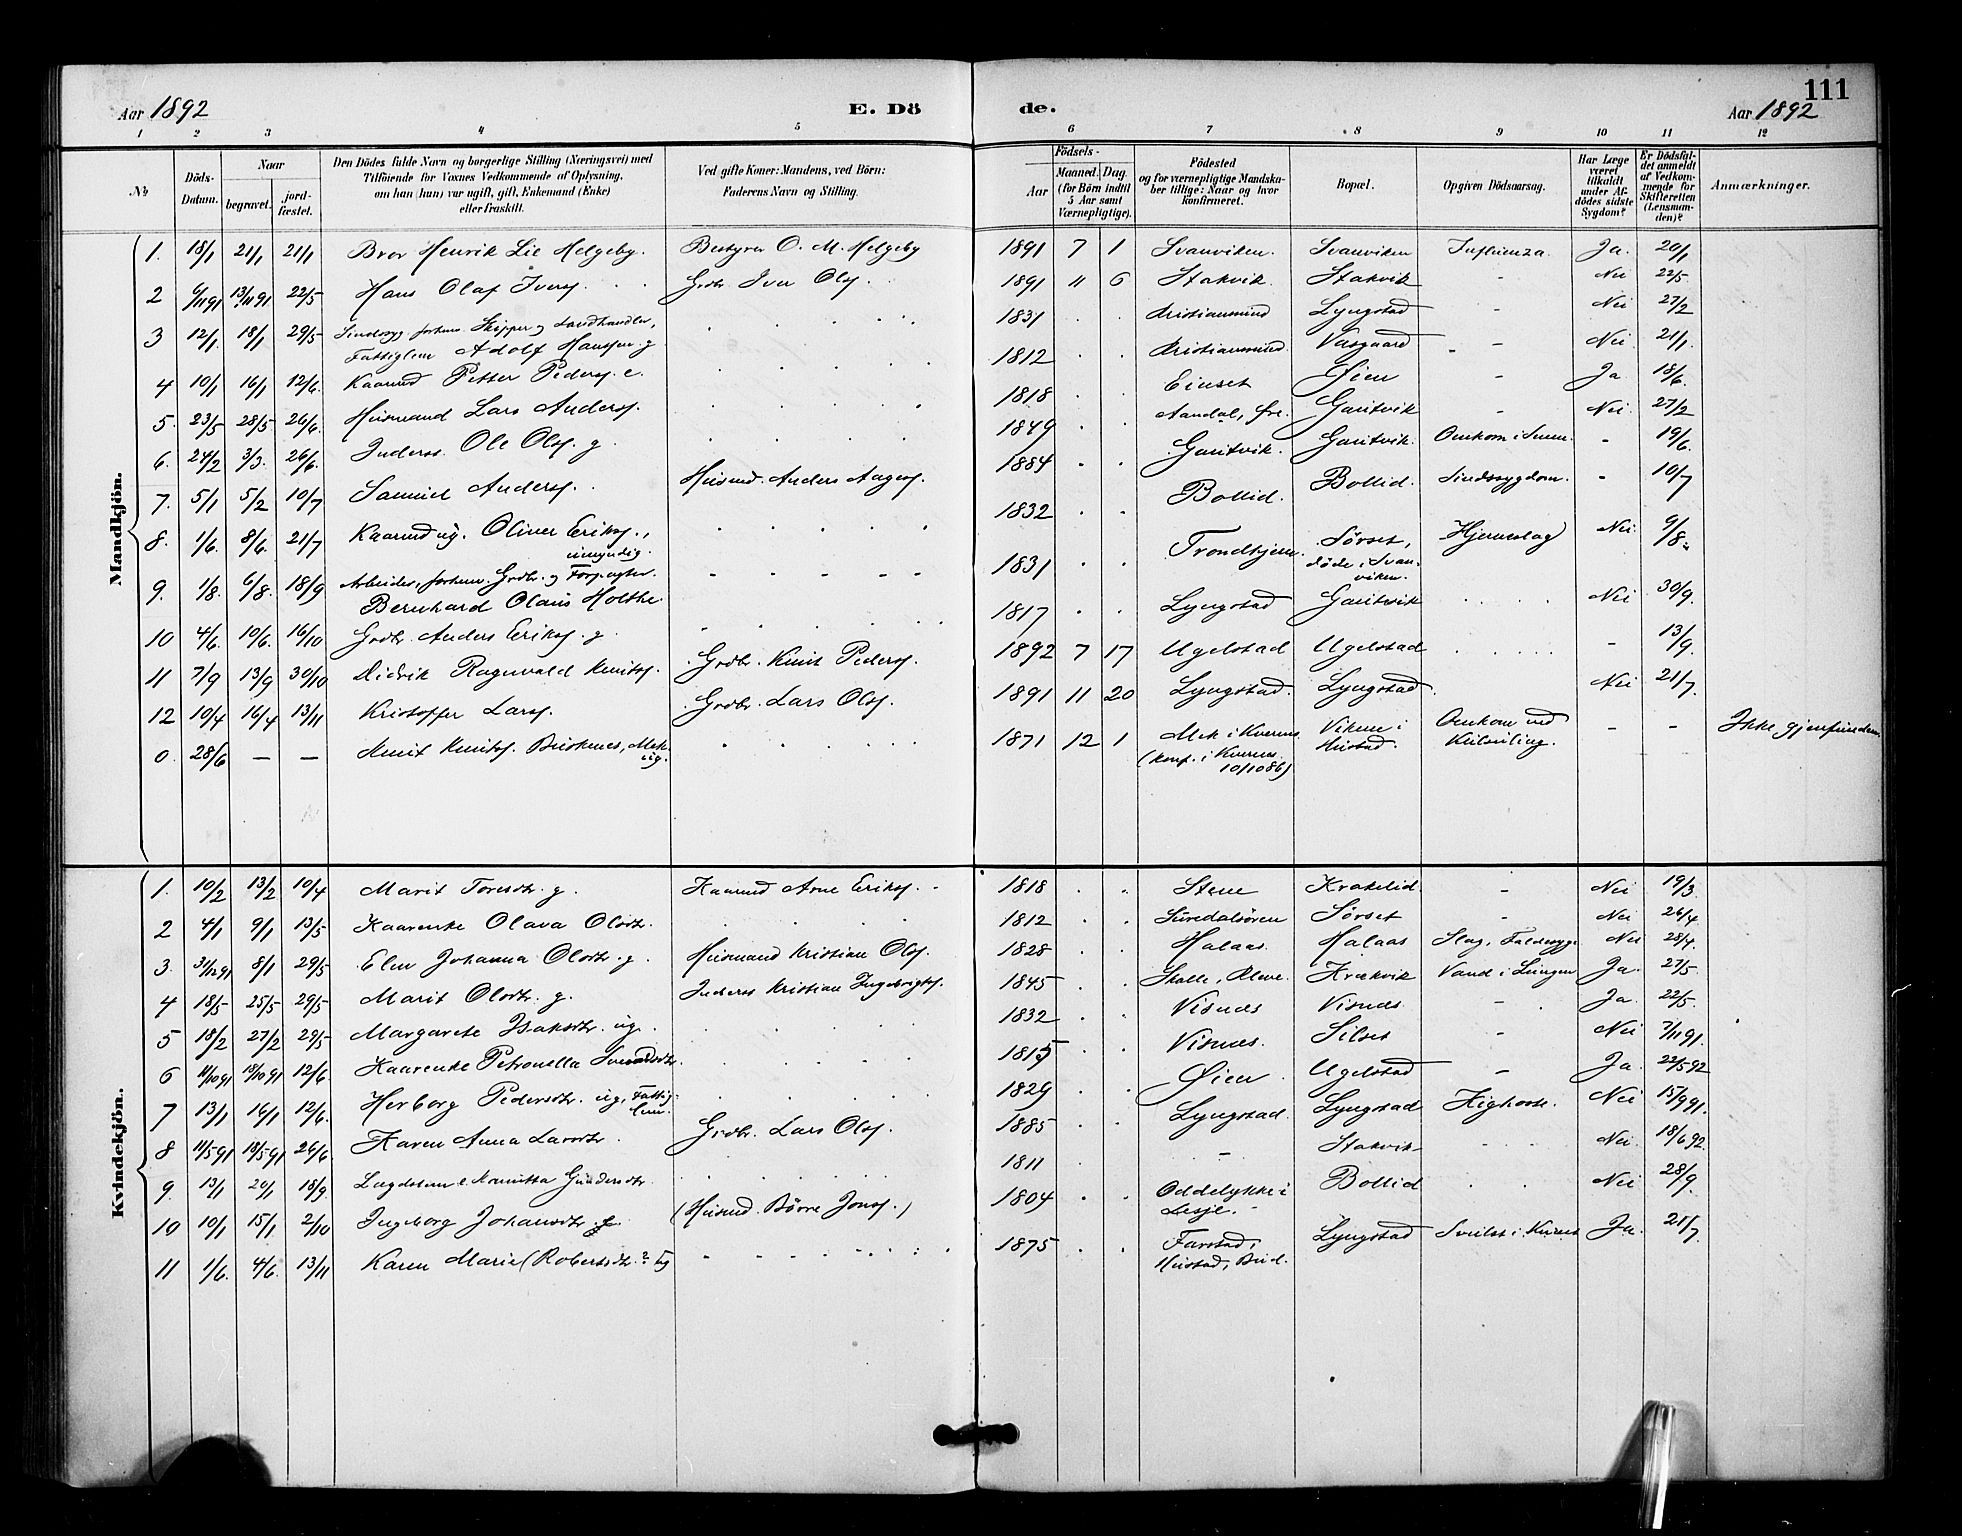 111
Aar 1892
E. Dö
de.
Aar 1892
1 2 3 4 5 6 7 8 9 10 11 12
No
Döds-Datum.
Naar
begravet.
jord-fæstet.
Den Dödes fulde Navn og borgerlige Stilling (Næringsvei) med
Tilföiende for Voxnes Vedkommende af Oplysning,
om han (hun) var ugift, gift, Enkemand (Enke)
eller fraskilt.
Ved gifte Koner: Mandens, ved Börn:
Faderens Navn og Stilling.
Födsels-
Aar
Maaned. Dag.
(for Börn indtil
5 Aar samt
Værnepligtige).
Födested
og for værnepligtige Mandska-
ber tillige: Naar og hvor
konfirmeret.
Bopæl.
Opgiven Dödsaarsag.
Har Læge
været
tilkaldt
under Af-
dödes sidste
Sygdom?
Er Dödsfal-
det anmeldt
af Vedkom-
mende for
Skifteretten
(Lensman-
den)?
Anmærkninger.
Mandkjön.
1. 18/1 21/1 21/1 Bror Henrik Lie Helgeby. Bestyrer O. M. Helgeby 1891 7 1 Svanviken. Svanviken Influenza. Ja. 20/1
2 6/11 91 13/11 91 22/5 Hans Olaf Ivers. Grdbr. Iver Ols. 1891 11 6 Stakvik Stakvik - Nei 22/5
3 12/1 18/1 29/5 Sindssyg, forhenv. Skipper og Landhandler,
Fattiglem Adolf Hanssen g 1831 Kristianssund Lyngstad - Nei 27/2
4 10/1 16/1 12/6 Kaarmd Petter Peders. e. 1812 Kristianssund. Vasgaard - Nei 21/1
5. 23/5 28/5 26/6. Husmand Lars Anders. 1818 Einset Øien - Ja 18/6.
6. 24/2 3/3. 26/6. Inderst. Ole Ols. g 1849 Aandal, Garitvik - Nei. 27/2
7. 5/1 5/2 10/7 Samuel Anders. Husmd. Anders Aages. 1884 Garitvik. Garitvik. Omkom i - 19/6
8. 1/6. 8/6. 21/7 Kaarmd ug. Oliver Eriks., umyndig. 1832 Bollid. Bollid. Sindssygdom. - 10/7
9. 1/8. 6/8. 18/9 Arbeider, forhenv. Grdbr. og Forpagter.
Bernhard Olaus Holthe. 1831 Trondhjem. Sørset,
døde i Svan-
viken. Hjerneslag Nei 9/8.
10 4/6. 10/6. 16/10 Grdbr. Anders Eriks. g. 1817 Lyngstad Garitvik Nei 30/9.
11 7/9 13/9 30/10 Didrik Ragnvald Knuts. Grdbr. Knut Peders. 1892 7 17 Ugelstad Ugelstad - 13/9.
12 10/4 16/4 13/11 Kristoffer Larss. Grdbr. Lars Ols. 1891 11 20 Lyngstad. Lyngstad. Nei 21/7.
0. 28/6 — — Knut Knuts. Mek. ug. 1871 12 1 Mek i Kvernes
(konf. i Kvernes
10/10 86) i
Hustad. Omkom ved
Kulseiling. - - Ikke gjenfunden.
Kvindekjön.
1. 10/2 13/2 10/4 Marit Toresdtr. g. Kaarmd Arne Eriks. 1818 Stene Krakelid - Nei 19/3
2 4/1 9/1 13/5 Kaarenke Olava Olsdtr. 1812 Suredalsøren Sørset - Nei 26/4
3. 31/12 91 8/1 29/5 Elen Johanna Olsdtr. g. Husmand Kristian Ols. 1828 Halaas. Halaas Slag, Faldesyge Nei 28/4.
4 18/5 25/5 29/5 Marit Olsdtr. g. Inderst Kristian Ingebrigts. 1845 Skalle, Kleve. Krækvik Vand i Lungen Ja. 27/5
5 18/2 27/2 29/5 Margarete Isaksdtr. ug. 1832 Visnes Visnes - Ja. 22/5.
6 11/10 91 19/10 91 12/6 Kaarenke Petronella Svendsdtr. 1815 Visnes. Silset - Nei 7/11 91.
7 13/1 16/1 12/6. Herborg Pedersdtr. ug, Fattig-
lem. 1829 Øien Ugelstad - Ja. 22/5 92
8 11/5 91 18/5 91 26/6. Karen Anna Larsdtr. Grdbr. Lars Ols. 1885 Lyngstad. Lyngstad Kighoste. Nei 15/9 91.
9. 13/1 20/1 18/9. Lægdslem e. Gundersdtr. 1811 - Stakvik Nei. 18/6 92.
10 10/1 15/1 2/10 Ingeborg Johansdtr. (Husmd. Børre Jons.) 1804 Oddelykke i
Lesje. Bollid Nei 28/9.
11 1/6. 4/6. 13/11 Karen Marie (Robertsdtr.? ug 1875 Farstad,
Hustad, Bud. Lyngstad Svulst i Ja. 21/7